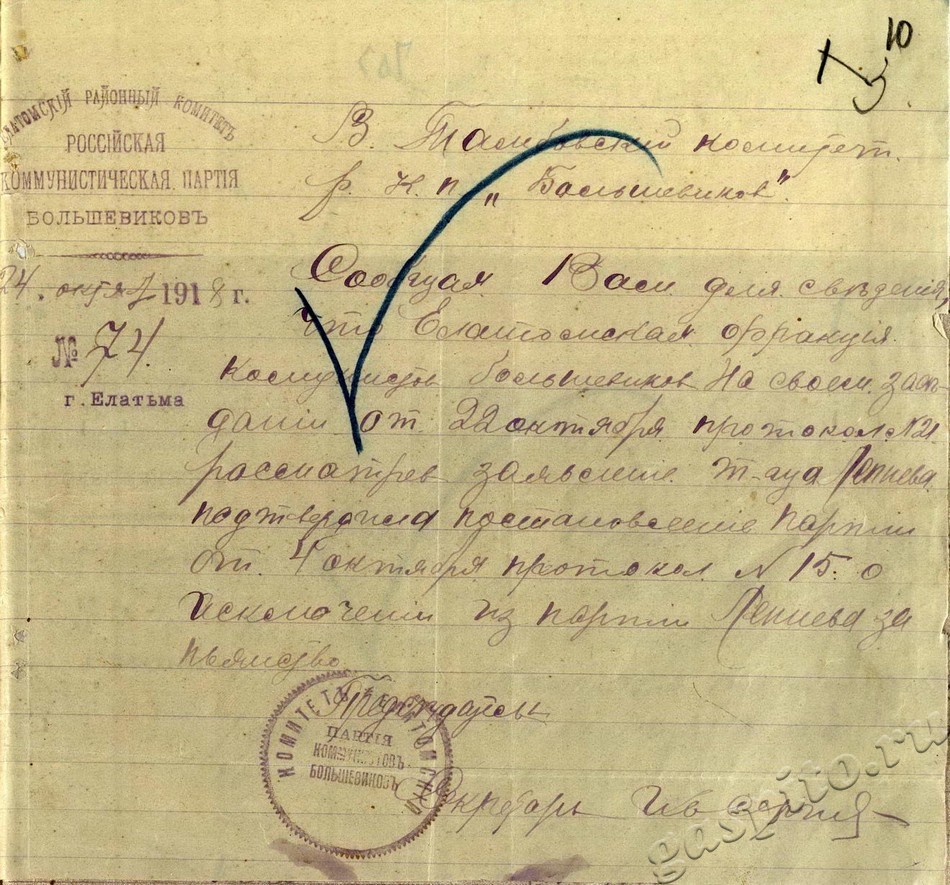 10
ЕЛАТОМСКІЙ РАЙОННЫЙ КОМИТЕТЪ
РОССІЙСКАЯ
КОММУНИСТИЧЕСКАЯ ПАРТІЯ
БОЛЬШЕВИКОВЪ
24. октяб 1918 г.
№ 74
г. Елатьма
В. Тамбовский комитет.
р. к. п „Большевиков".
Сообщая Вам для сведения,
что Елатомская фракция.
Коммунистов большевиков На своем засе-
дании от 22 октября протокол N 21
рассмотрев заявление т-ща
подтвердила постановление партии
от 4 октября протокол N 15. о
исключении из партии за
пьянство
Председатель
Секретарь
КОМИТЕТЪ ЕЛАТОМСКІЙ
ПАРТІЯ
КОММУНИСТОВЪ-
БОЛЬШЕВИКОВЪ
gaspito.ru